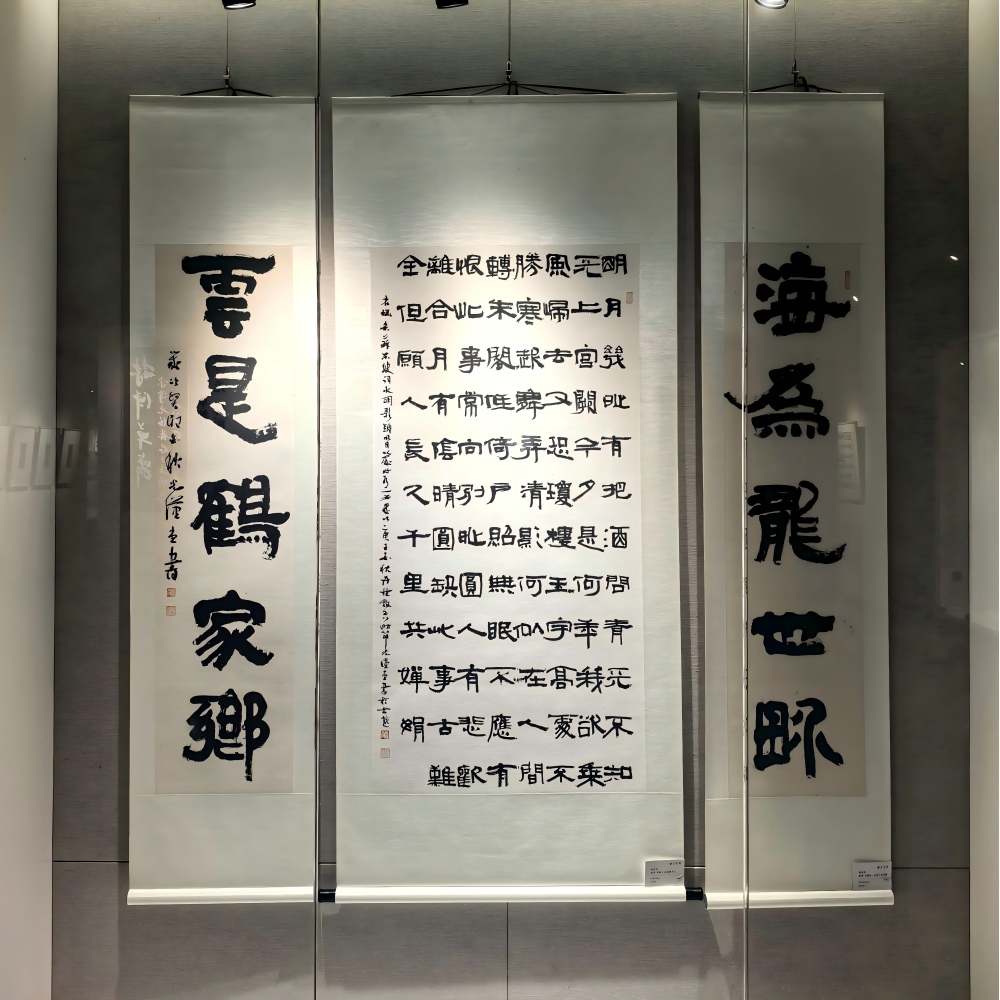 海為龍世畍
明月幾時有把酒問青天不知
天上宮闕今夕是何年我欲乘
風歸去又恐瓊樓玉宇高處不
勝寒起舞弄清影何似在人間
轉朱閣低倚戶照無眠不應有
恨此事常向別時圓人有悲歡
離合月有陰晴圓缺此事古難
全但願人長久千里共嬋娟
雲是鶴家鄉
歲次癸卯之秋 書